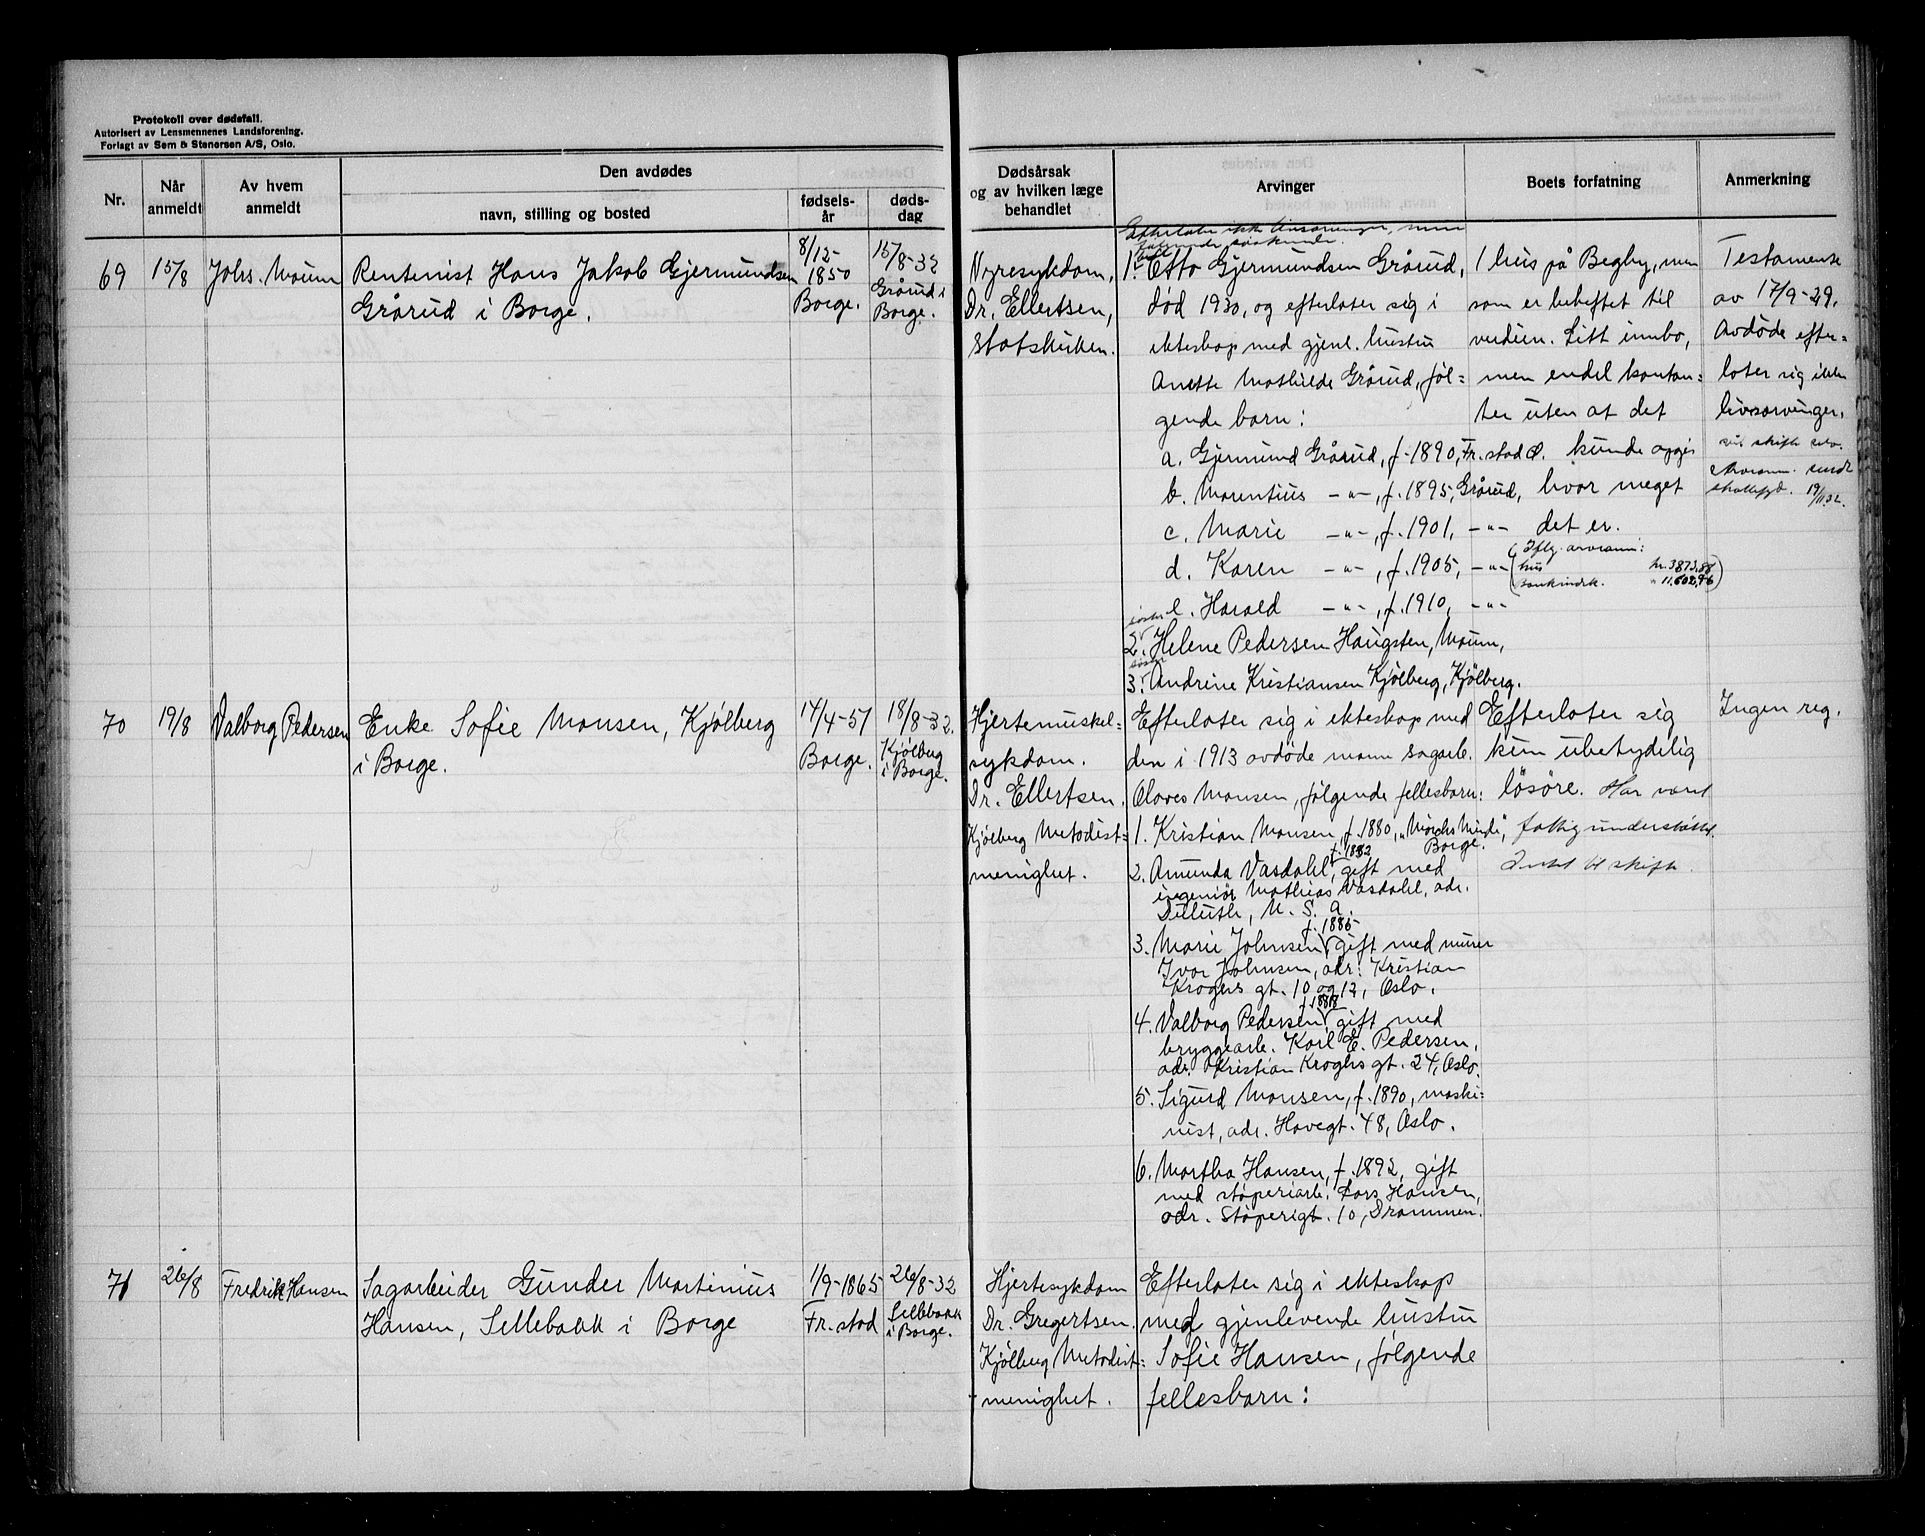 Protokoll over dødsfall.
Autorisert av Lensmennenes Landsforening.
Forlagt av Sem & Stenersen A/S, Oslo.
Nr.
Når
anmeldt
Av hvem
anmeldt
Den avdødes
navn, stilling og bosted
fødsels-
år
døds-
dag
Dødsårsak
og av hvilken læge
behandlet
Arvinger
Boets forfatning
Anmerkning
69
15/8
Johs. Moum
Rentenist Hans Jakob Gjermundsen
Grårud i Borge.
8/12-
1850
Borge.
15/8-32
Grårud i
Borge.
Nyresykdom,
Dr. Ellertsen,
Efterlater ikke livsarvinger, men
følgende søskende.
1. Otto Gjermundsen Grårud,
død 1930, og efterlater sig i
ekteskap med gjenl. hustru
Anette Mathilde Grårud, føl=
gende barn:
a. Gjermund Grårud, f. 1890, Fr.stad.
b. Marentius -"-, f. 1895, Grårud,
c. Marie -"-, f. 1901, -"-
d. Karen -"-, f. 1905, -"-
e. Harald -"-, f. 1910, -"-
søster
2. Helene Pedersen Haugsten, Moum,
søster
3. Andrine Kristiansen Kjølberg, Kjölberg.
1 hus på Begby, men
som er beheftet til
verdien. Litt innbo,
men endel kontan=
ter uten at det
kunde opgis
hvor meget
det er.
(Iflg. arveanm:
hus kr. 3873,88
bankinnsk. " 11,602,96)
Testamente
av 17/9-29.
Avdøde efter=
later sig ikke
livsarvinger.
skifte selv.
Arveanm. sendt
skattefgd. 19/11 32.
70
19/8
Valborg Pedersen
Enke Sofie Monsen, Kjølberg
i Borge.
14/4-57
Borge.
18/8-32.
Kjølberg
i Borge.
Hjertemuskel=
sykdom.
Dr. Ellertsen.
Kjølberg Metodist=
menighet.
Efterlater sig i ekteskap med
den i 1913 avdøde mann sagarb.
Olaves Monsen, følgende fellesbarn:
1. Kristian Monsen, f. 1880, "Morchs Minde",
Borge.
2. Amunda Vasdahl, f. 1882 gift med
ingeniør Mathias Vasdahl, adr.
Duluth, U. S. A.
3. Marie Johnsen, f. 1885 gift med murer
Ivar Johnsen, adr: Kristian
Kroghs gt. 10 og 12, Oslo.
4. Valborg Pedersen, f. 1888, gift med
bryggearb. Karl E. Pedersen,
adr. Kristian Kroghs gt. 24, Oslo.
5. Sigurd Monsen, f. 1890, maski=
nist, adr. Havegt. 48, Oslo.
6. Martha Hansen, f. 1892, gift
med støperiarb. Lars Hansen,
adr. Støperigt. 10, Drammen.
Efterlater sig
kun ubetydelig
løsøre. Har vært
fattigunderstøttet.
Intet til skifte.
Ingen reg.
71
26/8
Fredrik Hansen
Sagarbeider Gunder Martinius
Hansen, Sellebakk i Borge
1/9-1865
Fr.stad
26/8-32
Sellebakk
i Borge.
Hjertesykdom
Dr. Gregertsen.
Kjølberg Metodist=
menighet.
Efterlater sig i ekteskap
med gjenlevende hustru
Sofie Hansen, følgende
fellesbarn: